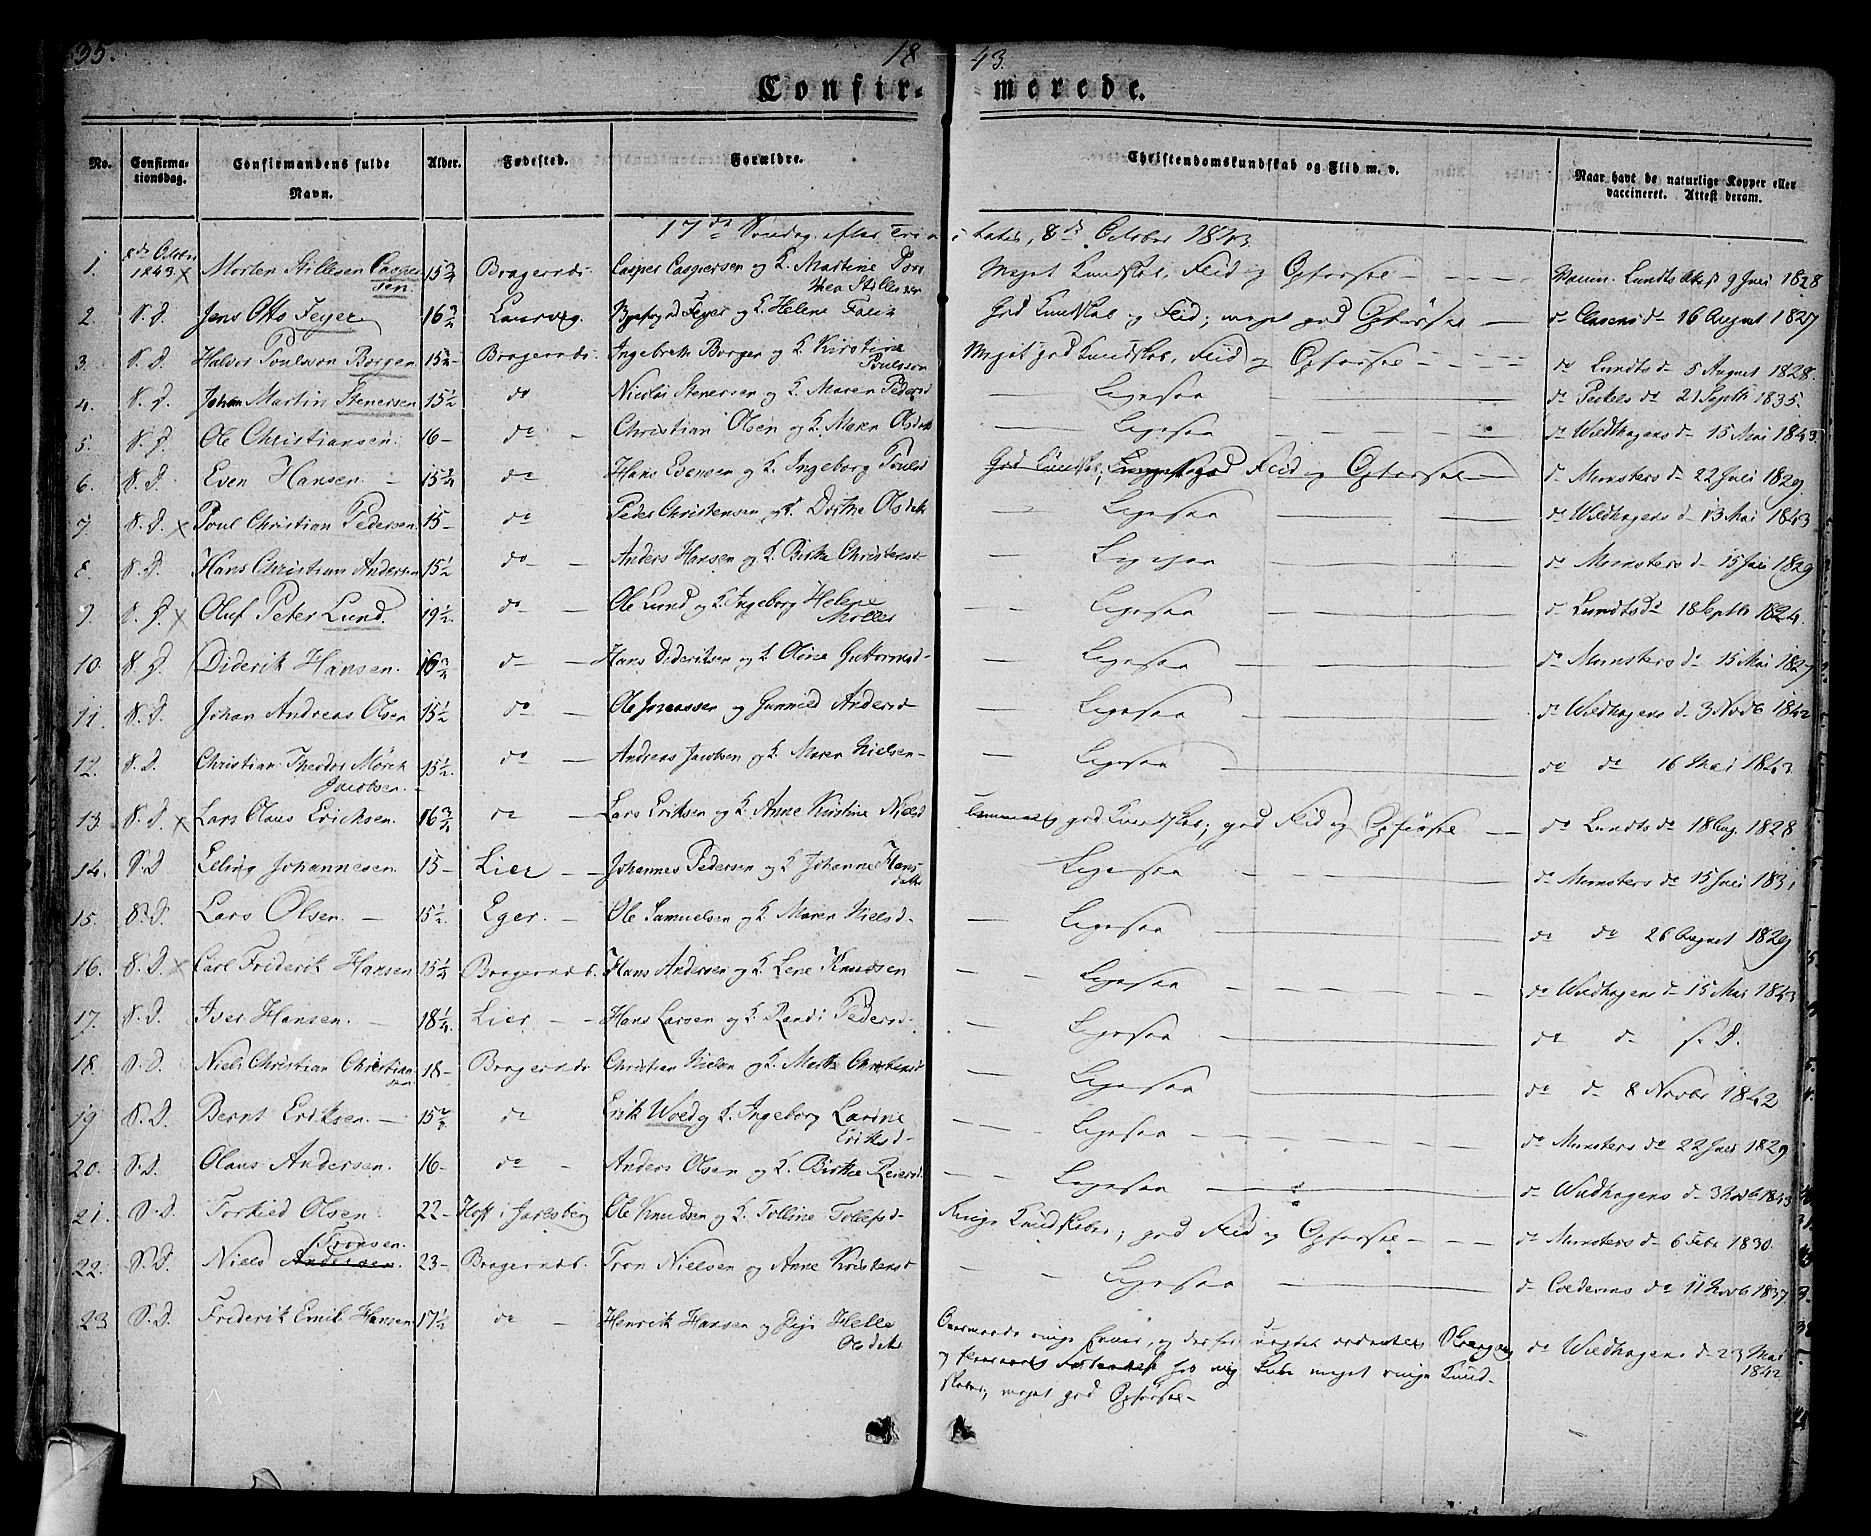 35. 18 43.
Confir- merede.
No. Confirmationsdag. Confirmandens fulde Navn. Alder. Fødested. Forældre. Christendomskundskab og Flid m. v. Naar havt de naturlige Kopper eller vaccineret. Attest derom.
17de Søndag efter Trinitatis, 8de October 1843
1. 8de Octbr 1843 x Morten Stillesen Caspersen 15 3/4 Bragernæs. Casper Caspersen og K. Martine Dorthea Stillesen Meget Kundskab, Flid og Opførsel — Lundts Attest 9 Juli 1828
2. S. D. Jens Otto Feyer 16 3/4 Laurvig. Feyer og K. Helene Meget god Opførsel — do Clasens do 16 August 1827
3. S. D. Halvor Poulsson Borgen 15 3/4 Bragernæs. Ingebreth Borgen og K. Kirstine Poulsson Meget god Kundskab, Flid og Opførsel — do Lundts do 5 August 1828.
4. S. D. Johan Martin Stenersen 15 1/2 do Nicolai Stenersen og K. Maren Pedersd — Ligesaa — do do 21 Septb 1835.
5. S. D. Ole Christiansen. 16 — do — Christian Olsen og K. Maren Olsdatt — Ligesaa — do Wildhagens do 15 Mai 1843.
6. S. D. Even Hansen. — 15 3/4 do Hans Evensen og K. Ingeborg Poulsd God Kundskab, god Flid og Opførsel — do Munsters do 22 Juli 1829.
7. S. D. x Poul Christian Pedersen 15 — do Peder Christensen og K. Dorthe Olsdatt — Ligesaa — do Wildhagens do 13 Mai 1843
8. S. D. Hans Christian Andersen 15 1/2 do — Anders Hansen og K. Birthe Christensd — Ligesaa — do Munsters do 15 Juli 1829
9. S. D. x Oluf Peter Lund. 19 1/2 do — Ole Lund og K. Ingeborg Helene Møller — Ligesaa — do Lundts do 18 Septb 1824.
10. S. D. Diderik Hansen. 16 3/4 do — Hans Dideriksen og K. Oline Guttormsd — Ligesaa — do Munsters do 15 Mai 1827
11. S. D. Johan Andreas Olsen 15 1/2 do — Ole og Gunnild Andersd — Ligesaa — do Wildhagens do 3 Novb 1842
12. S. D. Christian Theodor Mørch Jacobsen. 15 1/2. do — Andreas Jacobsen og K. Maren Nielsen — Ligesaa — do do 16 Mai 1843.
13. S. D. x Lars Olaus Eriksen. 16 3/4 do — Lars Eriksen og K. Anne Kirstine Nielsd god Kundskab, god Flid og Opførsel — do Lundts do 18 Aug. 1828
14. S. D. Elling Johannesen 15 — Lier — Johannes Pedersen og K. Johanne Hansdatter Ligesaa — do Munsters do 15 Juli 1831
15. S. D. Lars Olsen. — 15 1/2. Eger. — Ole Samuelsen og K. Maren Nielsd. — Ligesaa — do do 26 August 1829
16. S. D. x Carl Friderik Hansen 15 1/4 Bragernæs. Hans Andersen og K. Lene Knudsen — Ligesaa — do Wildhagens do 15 Mai 1843
17. S. D. Iver Hansen. — 18 1/4. Lier — Hans Larsen og K. Randi Pedersd. — Ligesaa — do do S. D.
18. S. D. Niels Christian Christiansen 18 — Bragernæs Christian Nielsen og K. Marthe Christensd — Ligesaa — do do 8 Novbr 1842
19 S. D. Bernt Eriksen. — 15 do Erik Wold og K. Ingeborg Lavine Eriksd — — Ligesaa — do Munsters do 22 Juli 1829
20. S. D. Olaus Andersen. 16 — do — Anders Olsen og K. Birthe Reiersd. — Ligesaa — do Wildhagens do 3 Novb 1843
21. S. D. Torkild Olsen 22 — Hoff i Jarlsberg Ole Knudsen og K. Tolline Tollefsd — Ringe Kundskaber; god Flid og Opførsel — do Munsters do 6 Febr 1830.
22. S. D. Niels Andersen. Tronsen. 23 — Bragernæs. Tron Nielsen og Anne Kristensd — Ligesaa — do do 11 Novb 1837
23 S. D. Friderik Emil Hansen 17 1/2 do — Henrik Hansen og Helle Olsdatt ringe og derfor hos mig meget ringe Kundskaber, meget god Opførsel — do Wildhagens do 23 Mai 1842